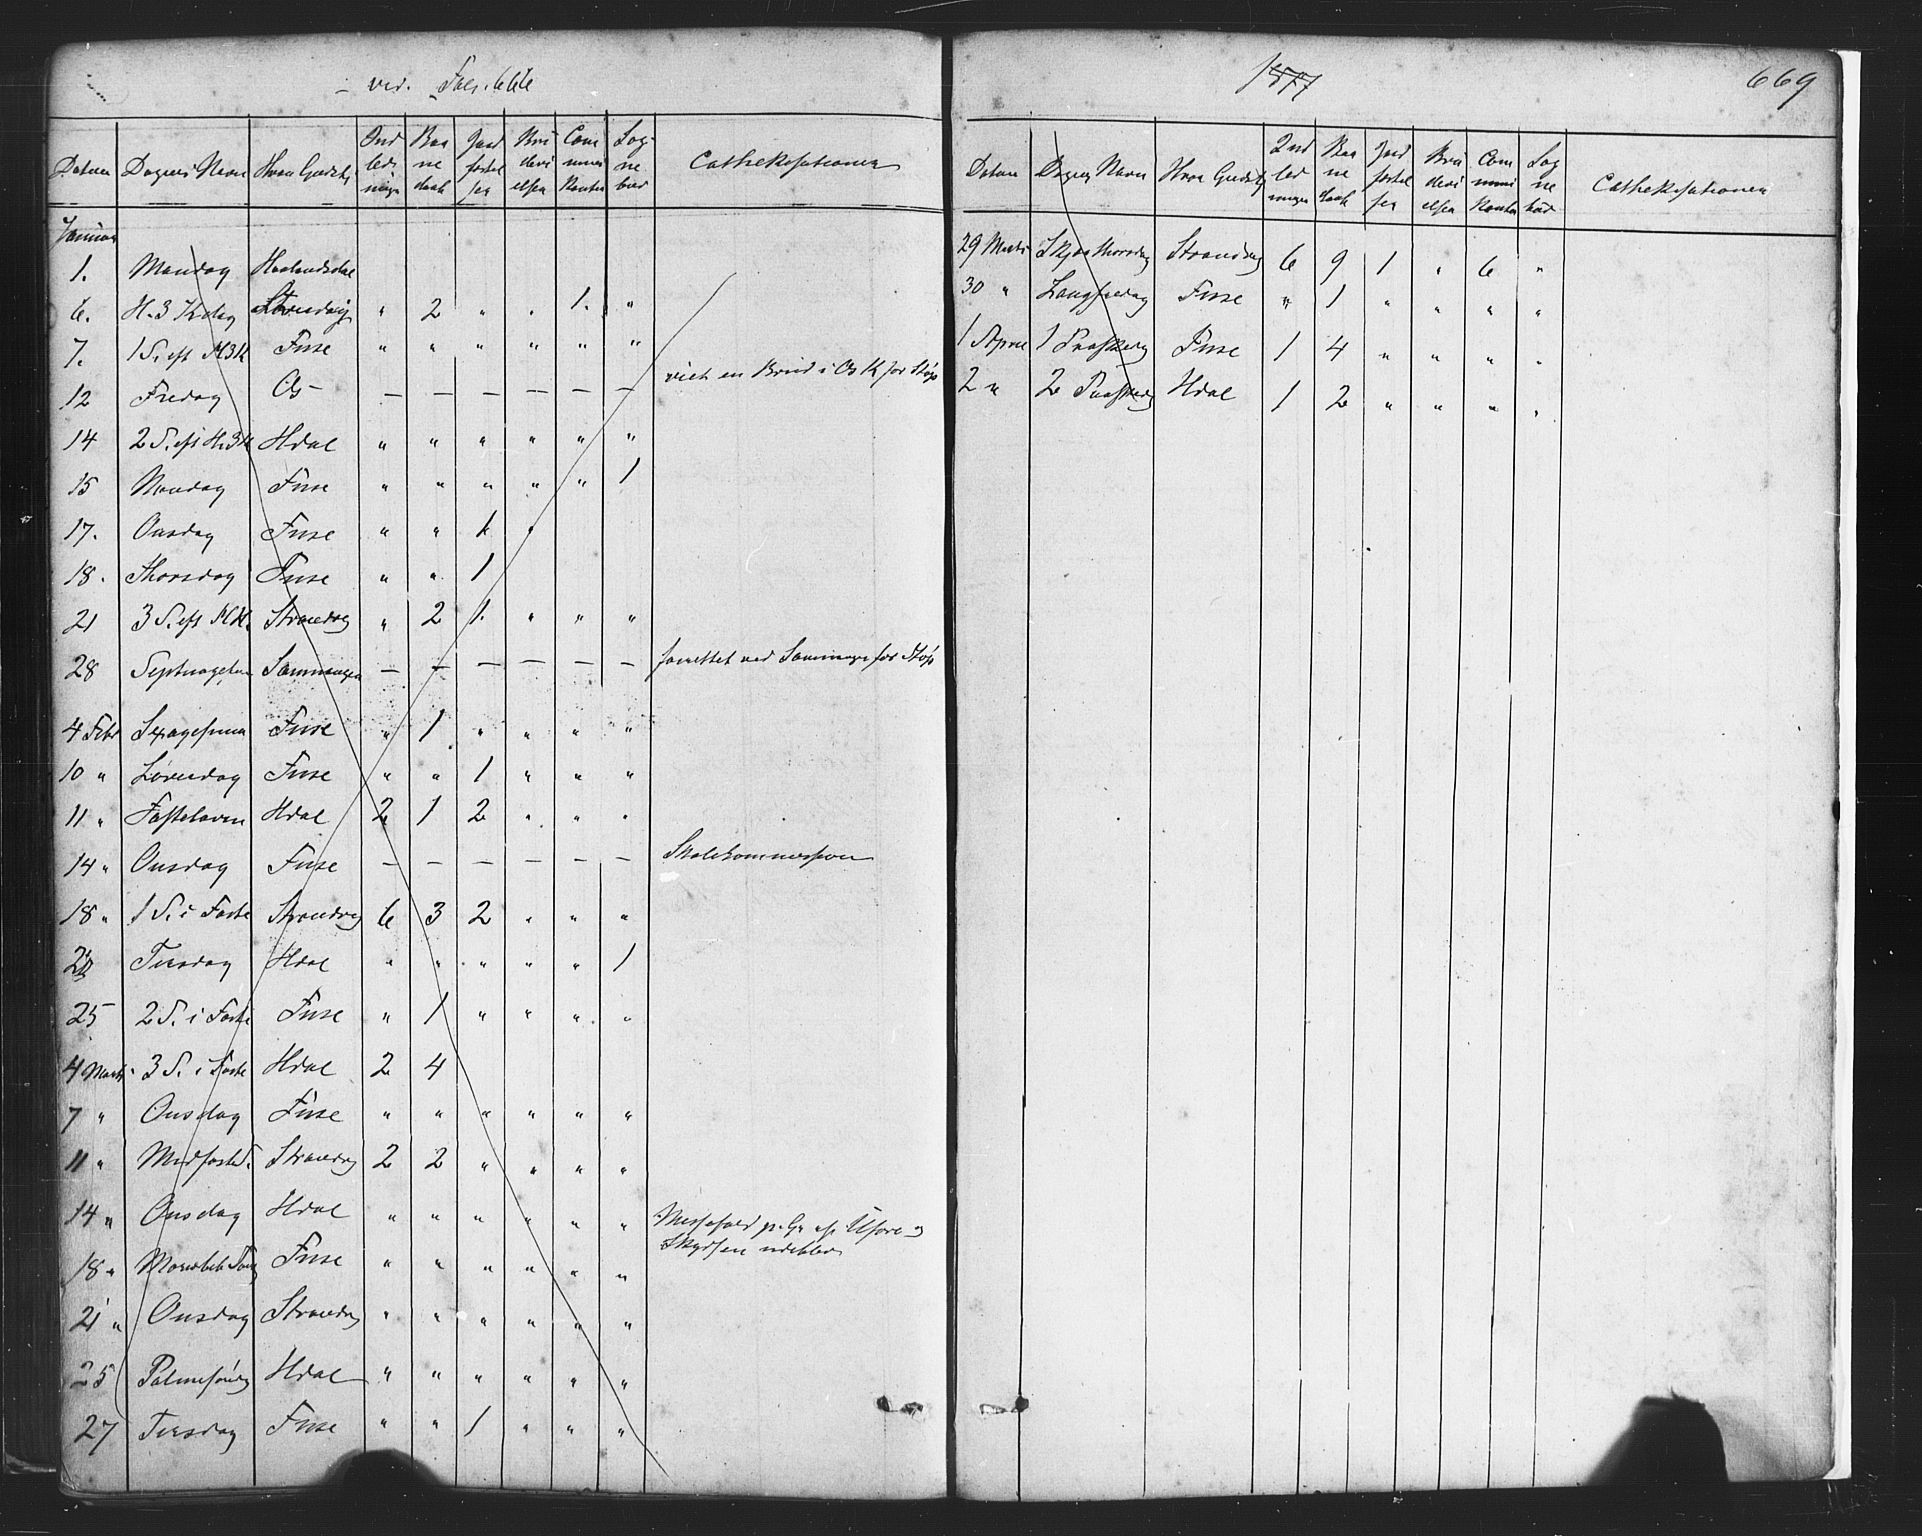 ved. Fol. 666
Datum Dagens Navn Hvor Gudstj Ind leds ninger Bar ne daab Jord fæstel ser Bru devi elser Com muni kanter Sog ne bud Cathekisationen
Januar
1. Mandag Haalandsdal
6. H. 3 K dag Strandvig " 2 " " 1. "
7. 1 S. eft H3K Fuse " " " " " "
12 Fredag Os – – – – – – – viet en Brud i Os K for
14 2 S. eft H.3K Hdal " " " " " "
15 Mandag Fuse " " " " " 1
17. Onsdag Fuse " " 1. "
18. Thorsdag Fuse " " 1
21 3 S. eft H3K. Strandvig " 2 1. " " "
28 Septuagesima Samnanger – – – – – – forrettet ved Samnanger for
4 Febr Sexagesima Fuse " 1 " " " "
10 " Løverdag Fuse " " 1 " " "
11 " Fastelaven Hdal 2 1 2 " " "
14 " Onsdag Fuse – – – – – – Skolekommission
18 " 1 S. i Faste Strandvig 6 3 2 " " "
Tirsdag Hdal " " " " " 1
25 2 S. i Faste Fuse " 1 " " " "
4 Marts 3 S. i Faste Hdal 2 4
7 " Onsdag Fuse " " " " " "
11 " Midfaste S. Strandvig 2 2 " " " "
14 " Onsdag Hdal " " " " " " Messefald p. Gr af Uføre og
Skydsen udeblev
18 " Mariæ Fuse " " " " " "
21 " Onsdag Strandvig " " " " " "
25 Palmesøndag Hdal " " " " " "
27 Tirsdag Fuse " " 1 " " "
1877 669
Datum Dagens Navn Hvor Gudstj Ind led ninger Bar ne daab Jord fæstel ser Bru devi elser Com muni kanter Sog ne bud Cathekisationen
29 Marts Skjærthorsdag Strandvig 6 9 1 " 6 "
30 " Langfredag Fuse " 1 " " " "
1 April 1 Paaskedag Fuse 1 4 " " " "
2 " 2 Paaskedag Hdal 1 2 " " " "